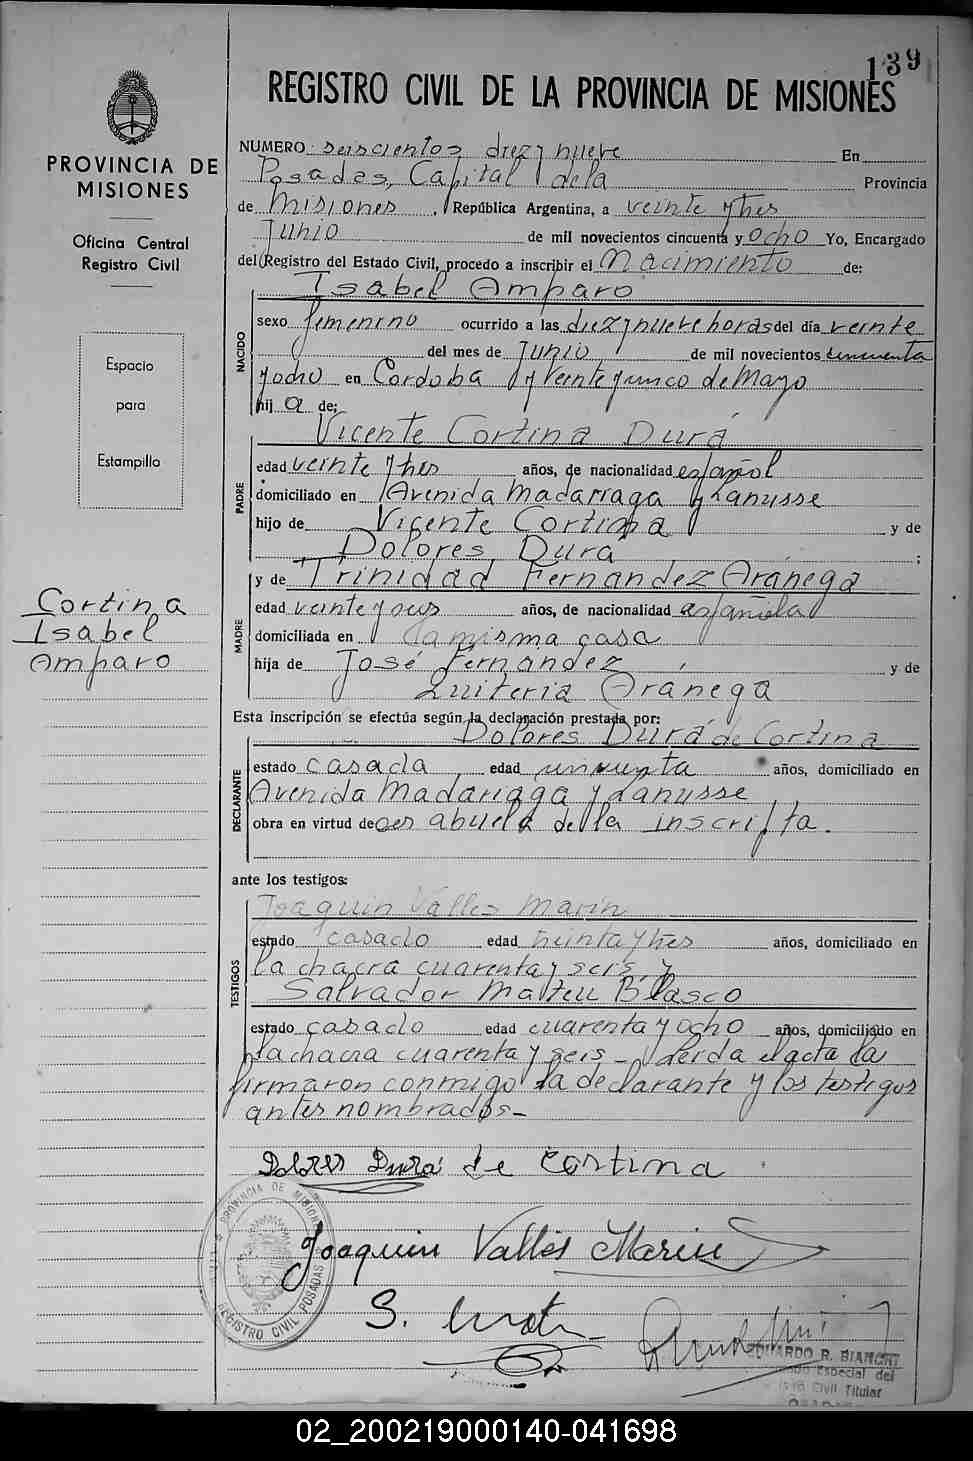 139
REGISTRO CIVIL DE LA PROVINCIA DE MISIONES
PROVINCIA DE
MISIONES
Oficina Central
Registro Civil
Espacio
para
Estampilla
Cortina
Isabel
Amparo
NUMERO seiscientos diez y nueve En
Posadas, Capital de la Provincia
de Misiones, República Argentina, a veinte y tres
Junio de mil novecientos cincuenta y ocho Yo, Encargado
del Registro del Estado Civil, procedo a inscribir el Nacimiento de:
Isabel Amparo
NACIDO
sexo femenino ocurrido a las diez y nueve horas del día veinte
del mes de Junio de mil novecientos cincuenta
y ocho en Cordoba y veinte y cinco de Mayo
hij a de:
Vicente Cortina Durá
PADRE
edad veinte y tres años, de nacionalidad español
domiciliado en Avenida Madariaga y Lanusse
hijo de Vicente Cortina y de
Dolores Dura ;
y de Trinidad Fernandez Aránega
MADRE
edad veinte y seis años, de nacionalidad española
domiciliada en la misma casa
hija de José Fernández y de
Quiteria Aránega
Esta inscripción se efectúa según la declaración prestada por:
Dolores Durá de Cortina
DECLARANTE
estado casada edad cincuenta años, domiciliado en
Avenida Madariaga y Lanusse
obra en virtud de ser abuela de la inscripta.
ante los testigos:
Joaquin Valles Marín
TESTIGOS
estado casado edad treinta y tres años, domiciliado en
la chacra cuarenta y seis, y
Salvador Mateu Blasco
estado casado edad cuarenta y ocho años, domiciliado en
la chacra cuarenta y seis - leida el acta la
firmaron conmigo la declarante y los testigos
antes nombrados-
Dolores Durá de Cortina
Joaquin Valles Marin
S.
PROVINCIA DE MISIONES
REGISTRO CIVIL POSADAS
EDUARDO R. BIANCHI
Especial del
Civil Titular
02_200219000140-041698